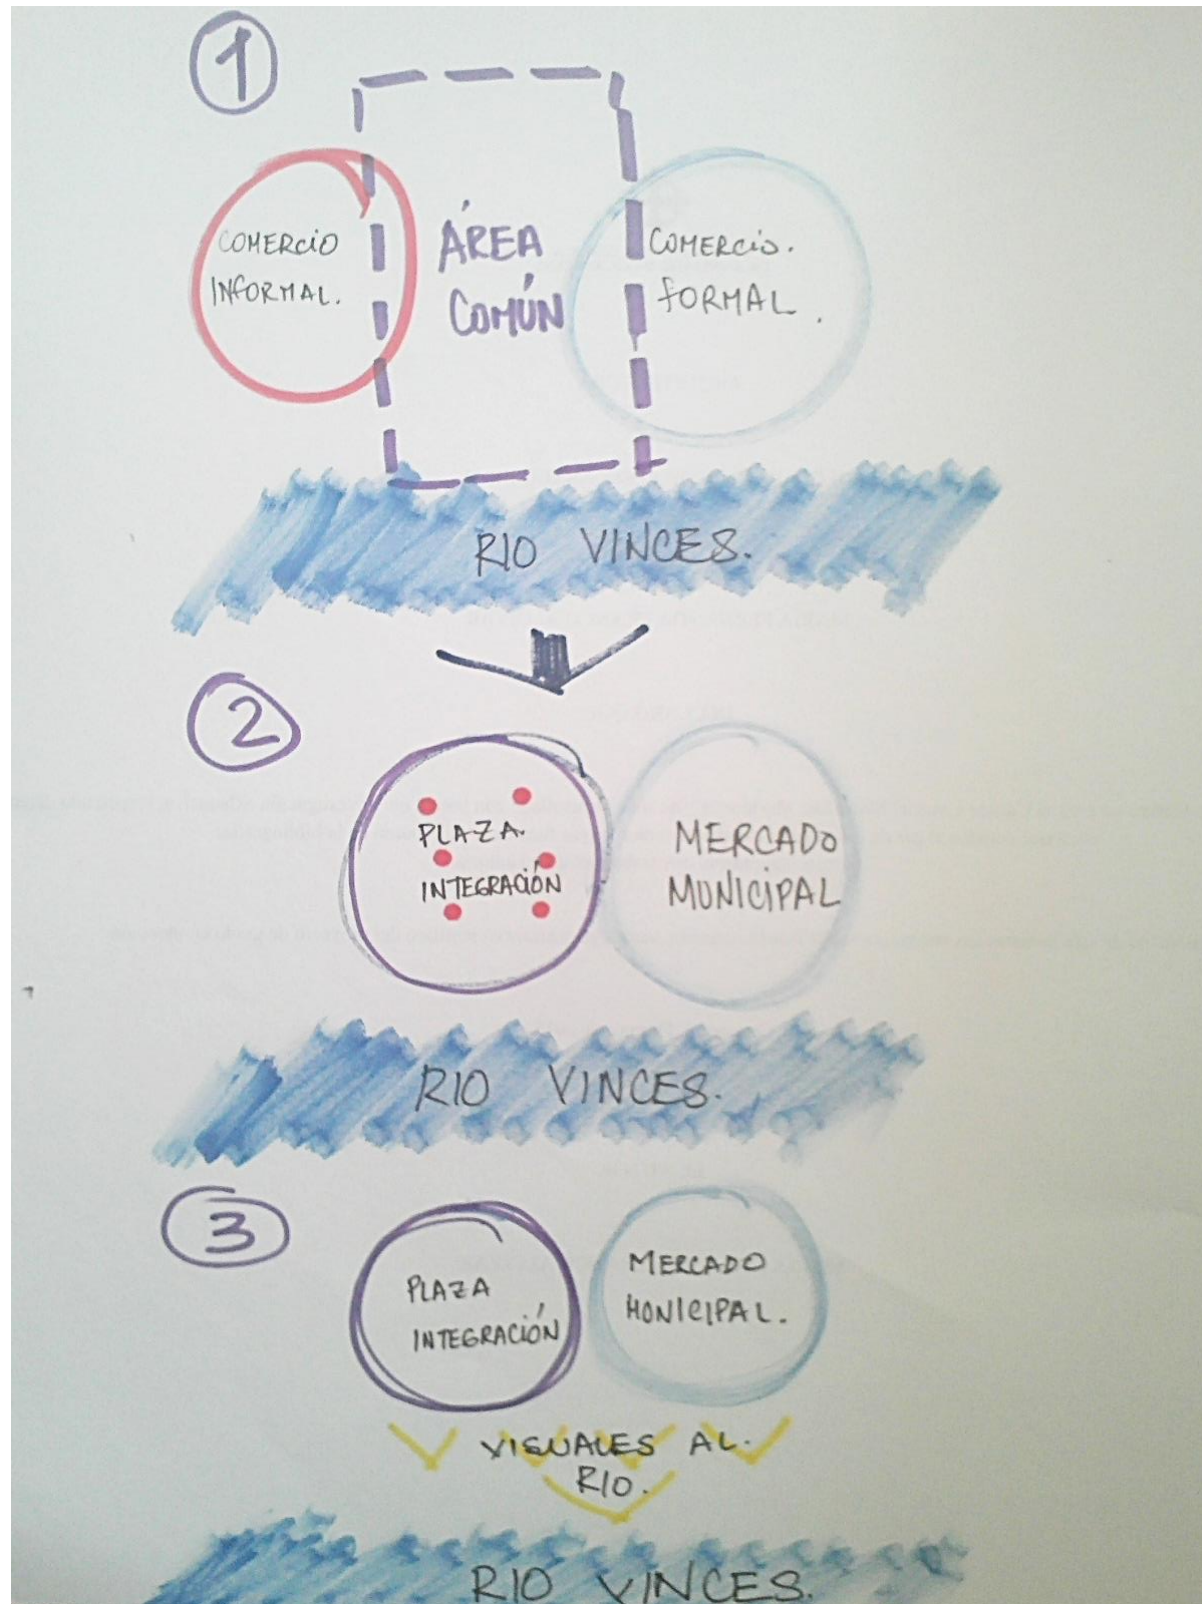 1
COMERCIO
INFORMAL.
ÁREA
COMÚN
COMERCIO.
FORMAL.
RIO VINCES.
2
PLAZA.
INTEGRACIÓN
MERCADO
MUNICIPAL
RIO VINCES.
3
PLAZA
INTEGRACIÓN
MERCADO
MONICIPAL.
VISUALES AL.
RIO.
RIO VINCES.